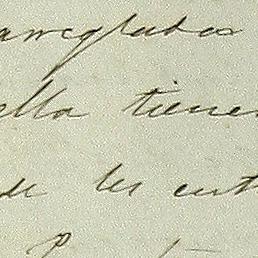 arreglados
ella tienen
de les ent